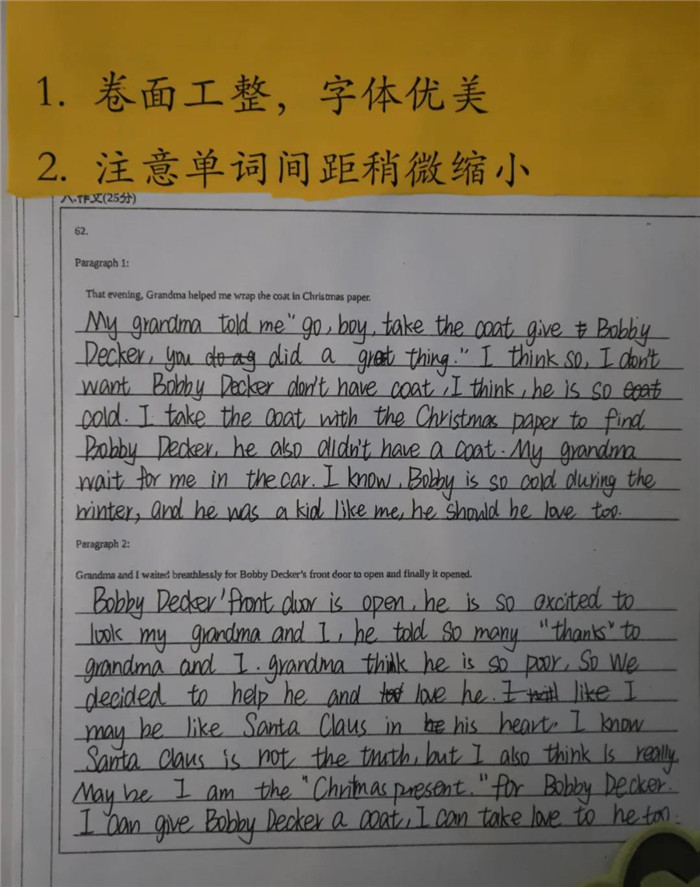 1. 卷面工整，字体优美
2. 注意单词间距稍微缩小
八.作文(25分)
62.
Paragraph 1:
That evening, Grandma helped me wrap the coat in Christmas paper.
My grandma told me" go, boy, take the coat give Bobby
Decker, you did a great thing." I think so, I don't
want Bobby Decker don't have coat, I think, he is so
cold. I take the coat with the Christmas paper to find
Bobby Decker, he also didn't have a coat. My grandma
wait for me in the car. I know, Bobby is so cold during the
winter, and he was a kid like me, he should be love too.
Paragraph 2:
Grandma and I waited breathlessly for Bobby Decker's front door to open and finally it opened.
Bobby Decker' front door is open, he is so excited to
look my grandma and I, he told so many "thanks" to
grandma and I. grandma think he is so poor, So we
decided to help he and love he. I like I
may be like Santa Claus in his heart. I know
Santa Claus is not the truth, but I also think Is really.
May be I am the "Chritmas present." for Bobby Decker.
I can give Bobby Decker a coat, I can take love to he too.